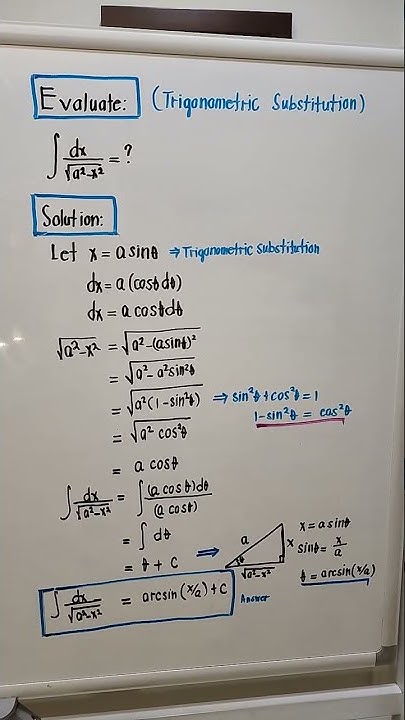 Evaluate: (Trigonometric Substitution)
∫ dx/√(a²-x²) = ?
Solution:
Let x = a sinθ ⇒ Trigonometric Substitution
dx = a (cosθ dθ)
dx = a cosθ dθ
√(a²-x²) = √(a²-(a sinθ)²)
= √(a²-a² sin²θ)
= √(a²(1-sin²θ)) ⇒ sin²θ + cos²θ = 1
= √(a² cos²θ) 1-sin²θ = cos²θ
= a cosθ
∫ dx/√(a²-x²) = ∫ (a cosθ)dθ/(a cosθ)
= ∫ dθ
= θ + C ⇒
a x θ √(a²-x²)
x = a sinθ
sinθ = x/a
θ = arcsin(x/a)
∫ dx/√(a²-x²) = arcsin(x/a) + C Answer